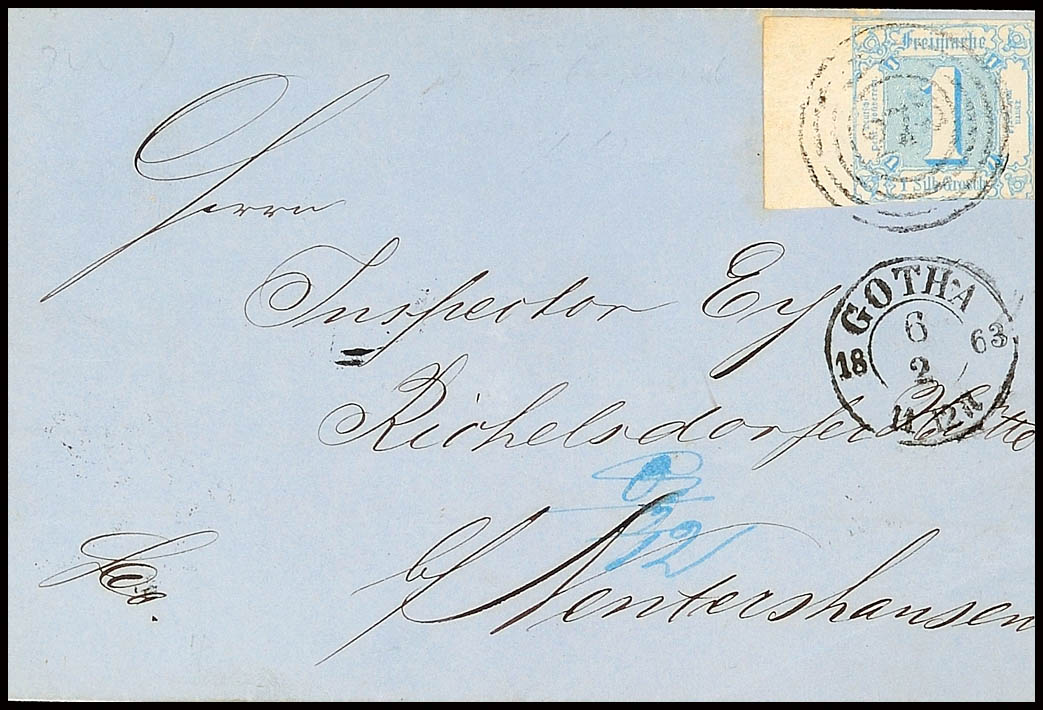 Freimarke
1
1 Silb. Grosch.
GOTHA
18 6 63
2
Herrn
Inspector Ey
Richelsdorfer Hütte
b/ Nentershausen